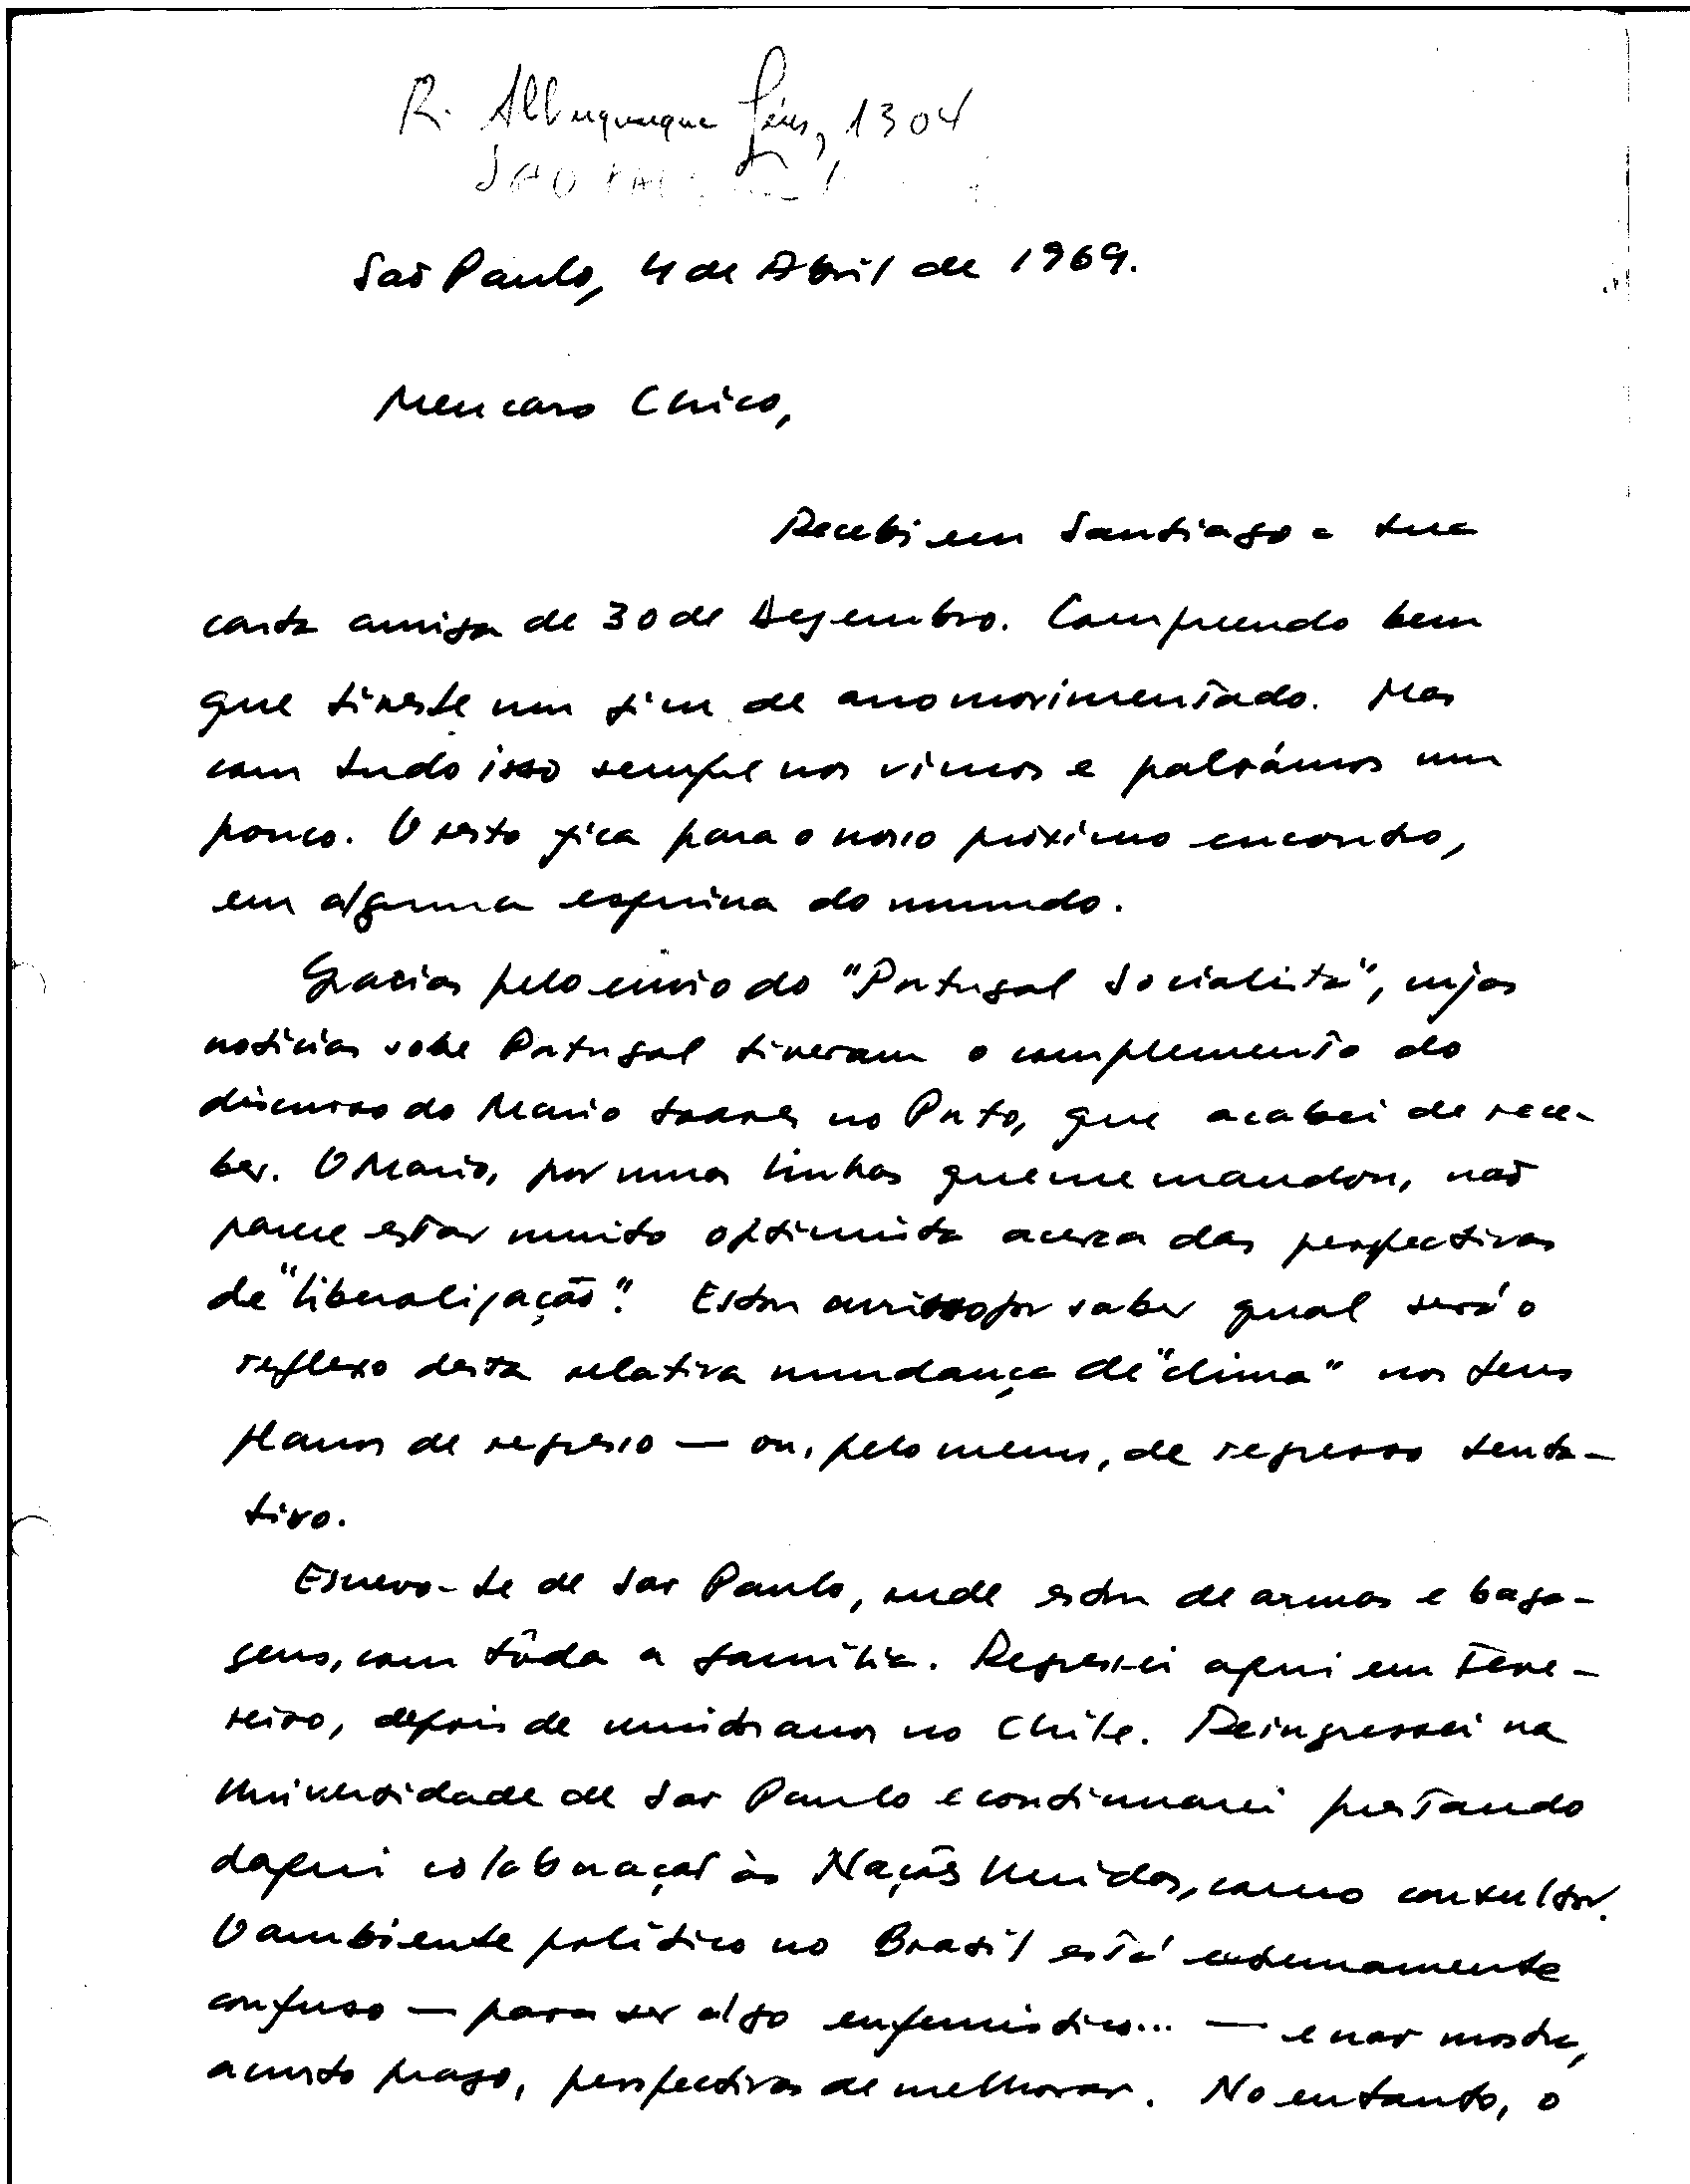 R. Albuquerque Lins, 1304
SÃO
São Paulo, 4 de Abril de 1969.
Meu caro Chico,
Recebi em Santiago a tua
carta amiga de 30 de Dezembro. Compreendo bem
que tiveste um fim de ano movimentado. Mas
com tudo isso sempre nos vimos e palrámos um
pouco. O resto fica para o nosso próximo encontro,
em alguma esquina do mundo.
Gracias pelo envio do "Portugal Socialista", cujas
notícias sobre Portugal tiveram o complemento do
discurso do Mario Soares no Porto, que acabei de rece-
ber. O Mario, por umas linhas que me mandou, não
parece estar muito optimista acerca das perspectivas
de "liberalização". Estou curioso por saber qual será o
reflexo desta relativa mundança de "clima" nos teus
planos de regresso — ou, pelo menos, de regresso tenta-
tivo.
Escrevo-te de São Paulo, onde estou de armas e baga-
gens, com tôda a família. Regressei aqui em Feve-
reiro, depois de muitos anos no Chile. Reingressei na
Universidade de São Paulo e continuarei prestando
daqui colaboração às Nações Unidas, como consultor.
O ambiente político no Brasil está extremamente
confuso — para ser algo eufemístico... — e não mostra,
a curto prazo, perspectivas de melhorar. No entanto, o